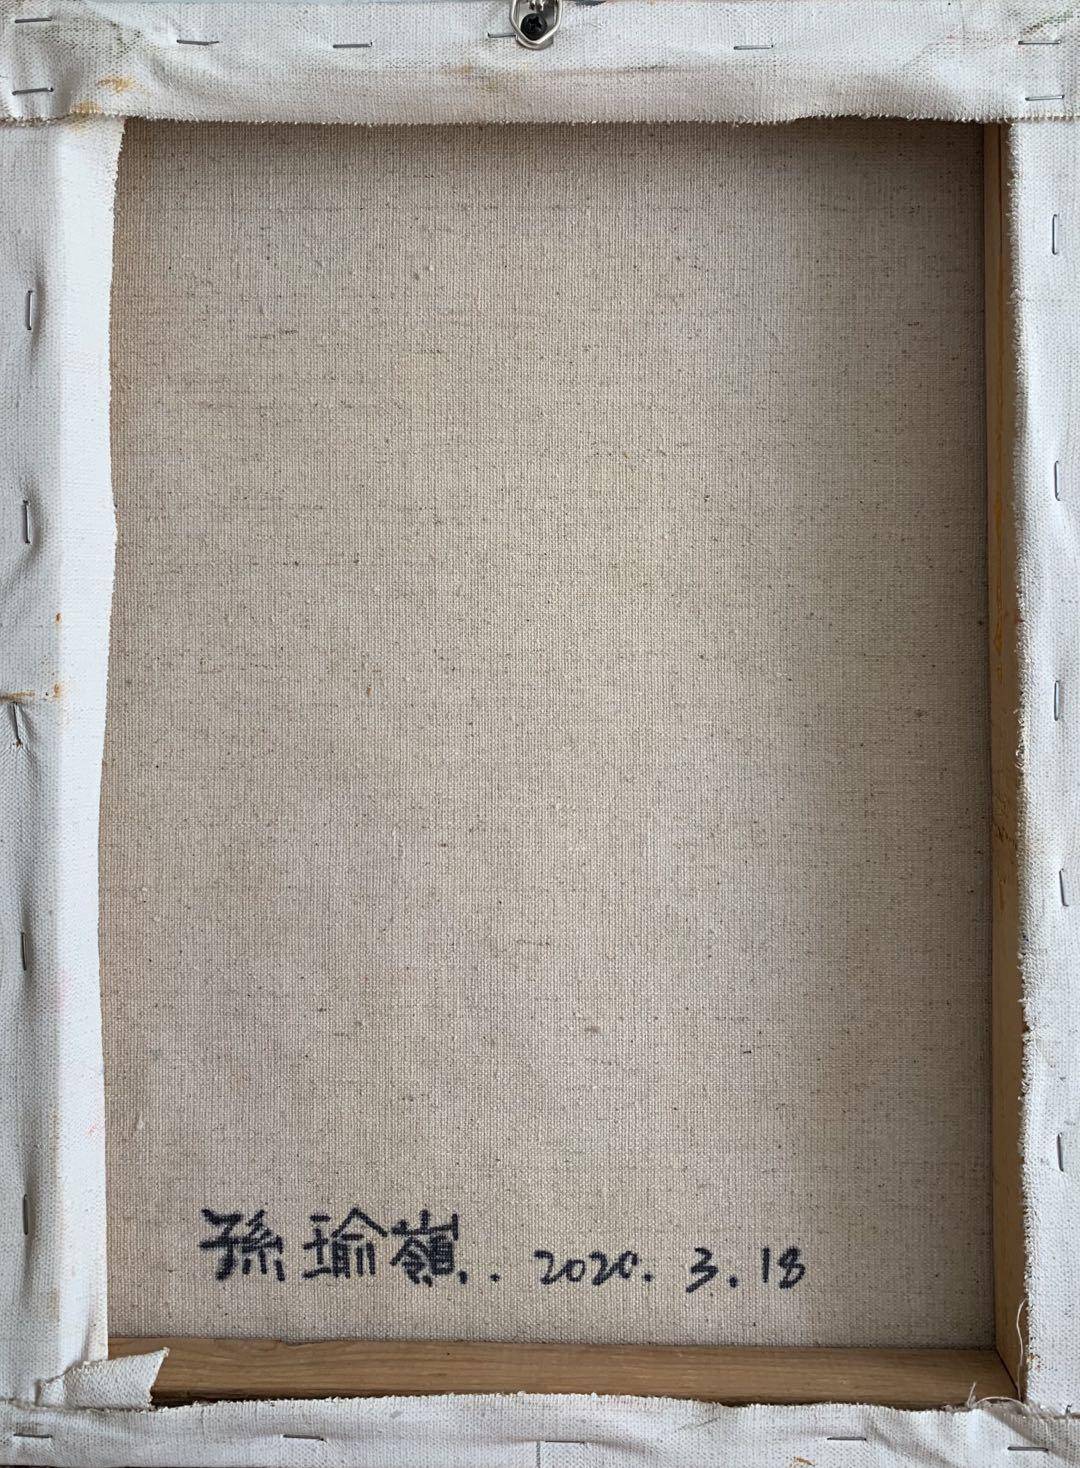 孫瑜嶺.. 2020. 3. 18